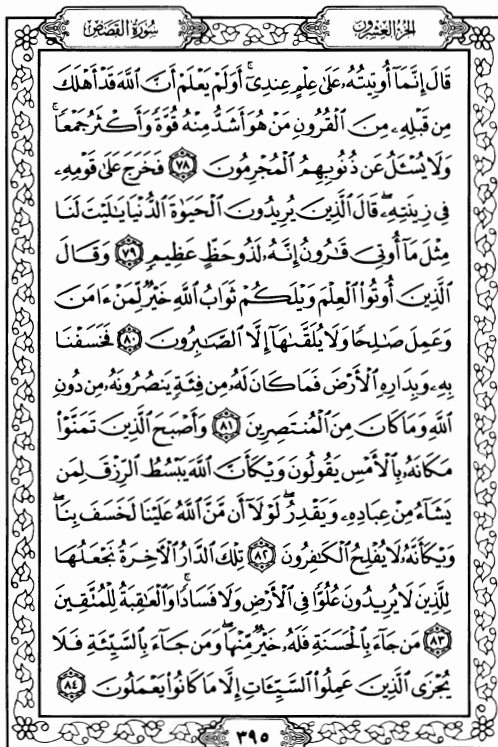 سُورَةُ القَصَصِ
الجُزْءُ العِشْرُونَ
قَالَ إِنَّمَآ أُوتِيتُهُۥ عَلَىٰ عِلْمٍ عِندِىٓ ۚ أَوَلَمْ يَعْلَمْ أَنَّ ٱللَّهَ قَدْ أَهْلَكَ
مِن قَبْلِهِۦ مِنَ ٱلْقُرُونِ مَنْ هُوَ أَشَدُّ مِنْهُ قُوَّةً وَأَكْثَرُ جَمْعًا ۚ
وَلَا يُسْـَٔلُ عَن ذُنُوبِهِمُ ٱلْمُجْرِمُونَ ٧٨ فَخَرَجَ عَلَىٰ قَوْمِهِۦ
فِى زِينَتِهِۦ ۖ قَالَ ٱلَّذِينَ يُرِيدُونَ ٱلْحَيَوٰةَ ٱلدُّنْيَا يَـٰلَيْتَ لَنَا
مِثْلَ مَآ أُوتِىَ قَـٰرُونُ إِنَّهُۥ لَذُو حَظٍّ عَظِيمٍ ٧٩ وَقَالَ
ٱلَّذِينَ أُوتُوا۟ ٱلْعِلْمَ وَيْلَكُمْ ثَوَابُ ٱللَّهِ خَيْرٌ لِّمَنْ ءَامَنَ
وَعَمِلَ صَـٰلِحًا وَلَا يُلَقَّىٰهَآ إِلَّا ٱلصَّـٰبِرُونَ ٨٠ فَخَسَفْنَا
بِهِۦ وَبِدَارِهِ ٱلْأَرْضَ فَمَا كَانَ لَهُۥ مِن فِئَةٍ يَنصُرُونَهُۥ مِن دُونِ
ٱللَّهِ وَمَا كَانَ مِنَ ٱلْمُنتَصِرِينَ ٨١ وَأَصْبَحَ ٱلَّذِينَ تَمَنَّوْا۟
مَكَانَهُۥ بِٱلْأَمْسِ يَقُولُونَ وَيْكَأَنَّ ٱللَّهَ يَبْسُطُ ٱلرِّزْقَ لِمَن
يَشَآءُ مِنْ عِبَادِهِۦ وَيَقْدِرُ ۖ لَوْلَآ أَن مَّنَّ ٱللَّهُ عَلَيْنَا لَخَسَفَ بِنَا ۖ
وَيْكَأَنَّهُۥ لَا يُفْلِحُ ٱلْكَـٰفِرُونَ ٨٢ تِلْكَ ٱلدَّارُ ٱلْـَٔاخِرَةُ نَجْعَلُهَا
لِلَّذِينَ لَا يُرِيدُونَ عُلُوًّا فِى ٱلْأَرْضِ وَلَا فَسَادًا ۚ وَٱلْعَـٰقِبَةُ لِلْمُتَّقِينَ
٨٣ مَن جَآءَ بِٱلْحَسَنَةِ فَلَهُۥ خَيْرٌ مِّنْهَا ۖ وَمَن جَآءَ بِٱلسَّيِّئَةِ فَلَا
يُجْزَى ٱلَّذِينَ عَمِلُوا۟ ٱلسَّيِّـَٔاتِ إِلَّا مَا كَانُوا۟ يَعْمَلُونَ ٨٤
٣٩٥